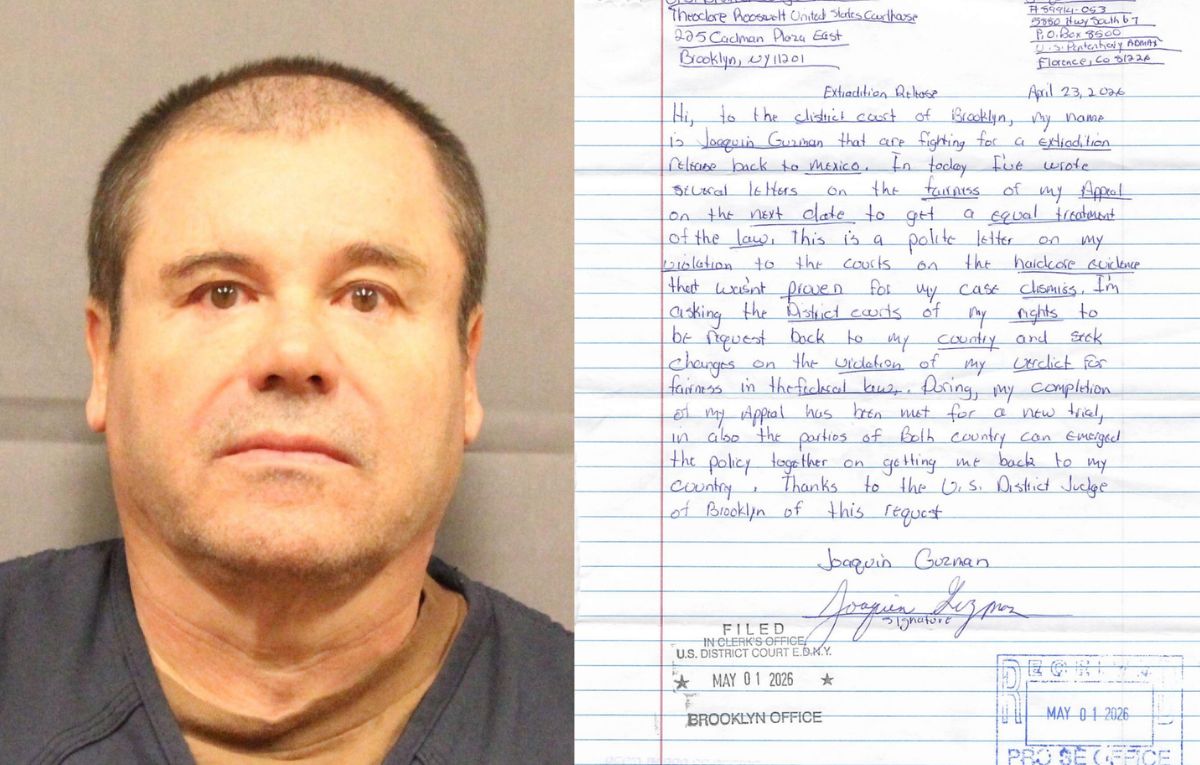 Theodore Roosevelt United States Courthouse
225 Cadman Plaza East
Brooklyn, NY 11201
5880 Hwy South 67
P.O. Box 8500
U.S. Penitentiary ADMAX
Florence, CO 81226
Extradition Release April 23, 2026
Hi, to the district court of Brooklyn, my name
is Joaquin Guzman that are fighting for a extradition
release back to Mexico. In today I've wrote
several letters on the fairness of my Appeal
on the next date to get a equal treatment
of the law. This is a polite letter on my
violation to the courts on the hardcore evidence
that wasn't proven for my case dismiss. I'm
asking the District courts of my rights to
be request back to my country and seek
changes on the violation of my verdict for
fairness in the federal law. During, my completion
of my Appeal has been met for a new trial,
in also the parties of Both country can emerged
the policy together on getting me back to my
country. Thanks to the U.S. District Judge
of Brooklyn of this request
Joaquin Guzman
Joaquin Guzman
Signature
FILED
IN CLERK'S OFFICE
U.S. DISTRICT COURT E.D.N.Y.
★ MAY 01 2026 ★
BROOKLYN OFFICE
MAY 01 2026
PRO SE OFFICE